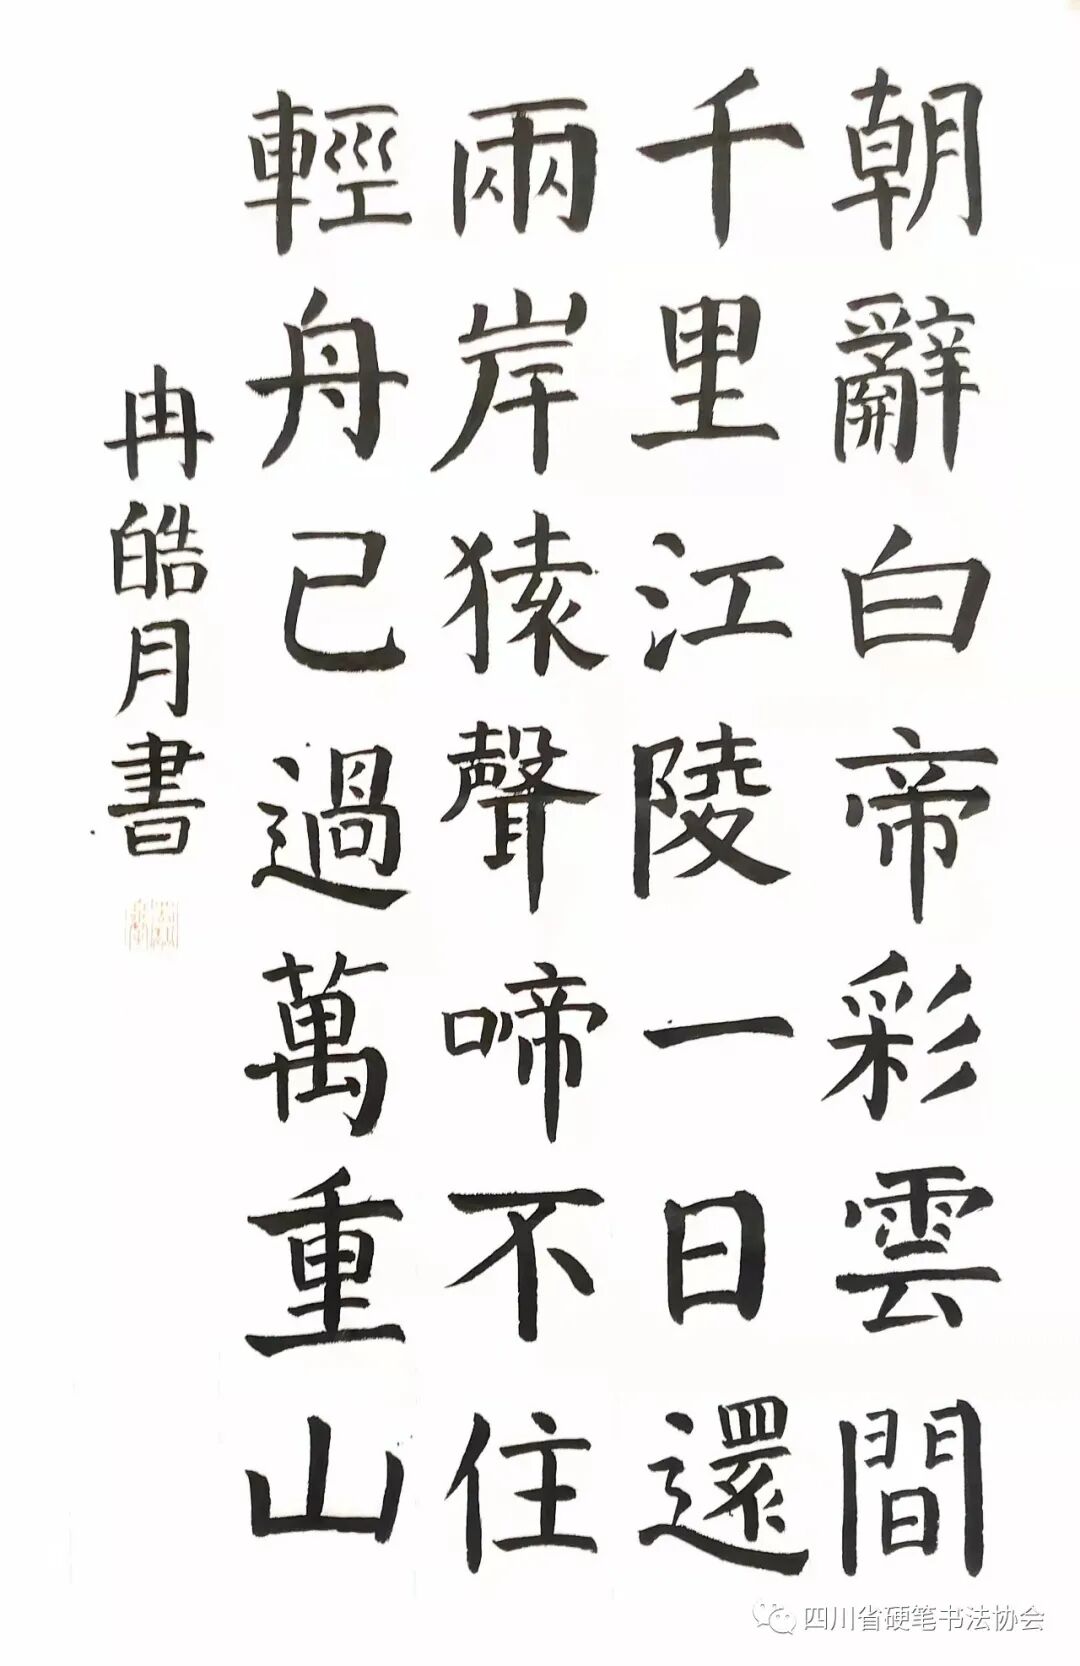 朝辭白帝彩雲間
千里江陵一日還
兩岸猿聲啼不住
輕舟已過萬重山
冉皓月書
四川省硬笔书法协会